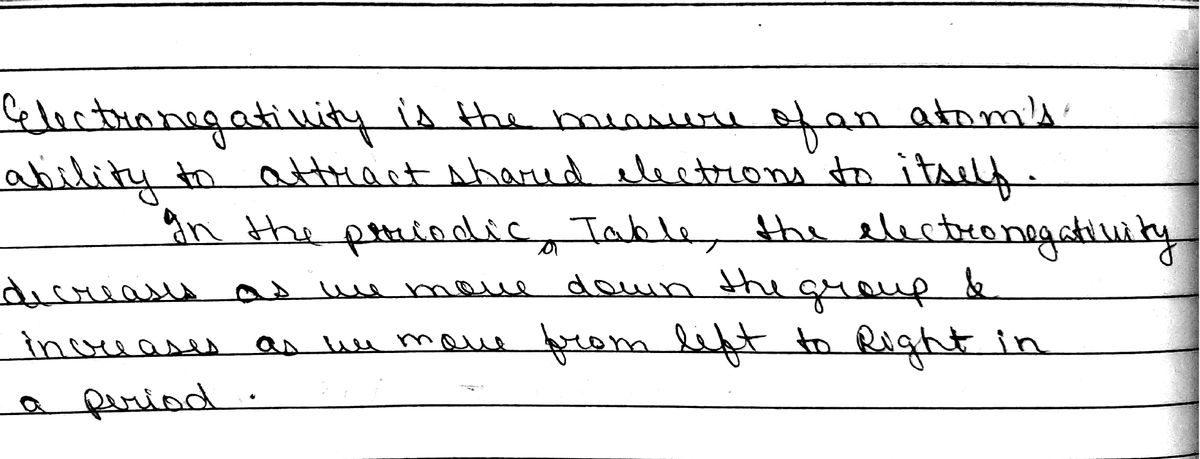 Electronegativity is the measure of an atom's
ability to attract shared electrons to itself.
In the periodic Table, the electronegativity
decreases as we move down the group &
increases as we move from left to Right in
a period.